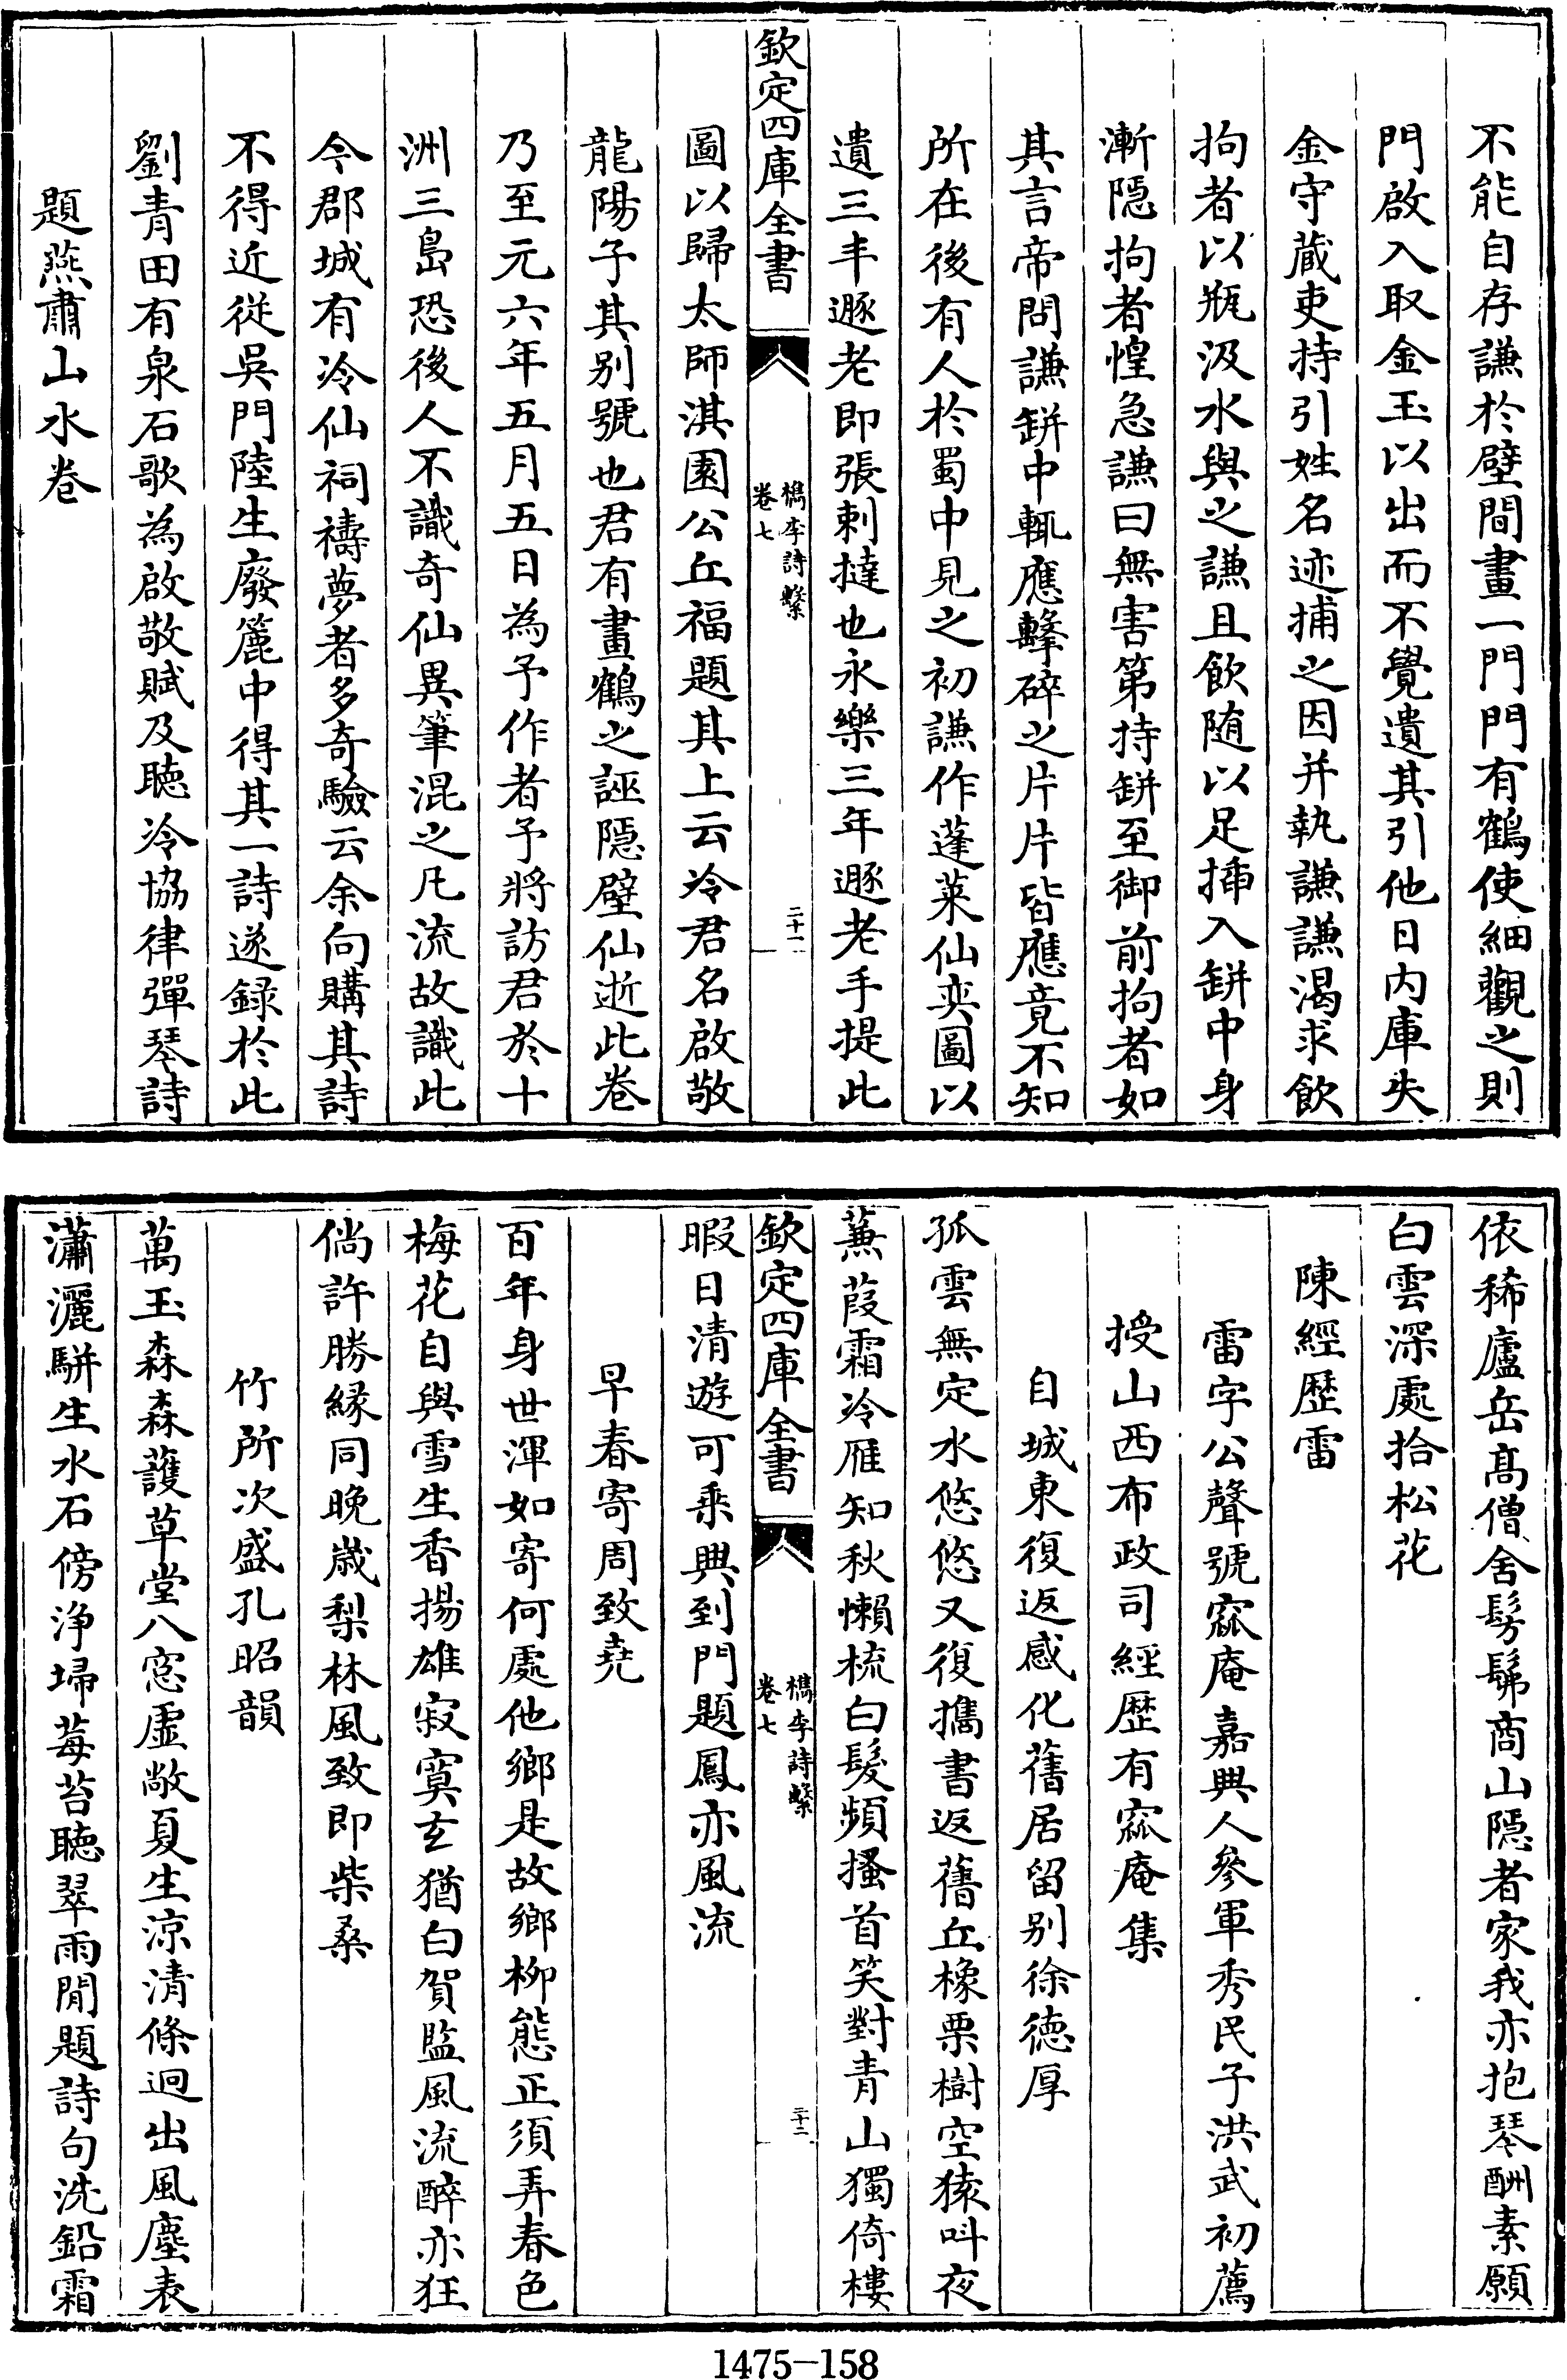 不能自存謙於壁間畫一門門有鶴使細觀之則
門啟入取金玉以出而不覺遺其引他日内庫失
金守蔵吏持引姓名迹捕之因并執謙謙渴求飲
拘者以瓶汲水與之謙且飲随以足揷入缾中身
漸隱拘者惶急謙曰無害第持缾至御前拘者如
其言帝問謙缾中輒應擊碎之片片皆應竟不知
所在後有人於蜀中見之初謙作蓬莱仙奕圖以
遺三丰遯老即張剌撻也永樂三年遯老手提此
欽定四庫全書
檇李詩繫
卷七
二十一
圖以歸太師淇園公丘福題其上云冷君名啟敬
龍陽子其别號也君有畫鶴之誣隱壁仙逝此卷
乃至元六年五月五日為予作者予將訪君於十
洲三島恐後人不識奇仙異筆混之凡流故識此
今郡城有冷仙祠禱夢者多奇驗云余向購其詩
不得近從吳門陸生廢簏中得其一詩遂録於此
劉青田有泉石歌為啟敬賦及聽冷協律彈琴詩
題燕肅山水卷
依稀廬岳髙僧舍髣髴商山隱者家我亦抱琴酬素願
白雲深處拾松花
陳經歴雷
雷字公聲號窳庵嘉興人參軍秀民子洪武初薦
授山西布政司經歴有窳庵集
自城東復返感化舊居留别徐德厚
孤雲無定水悠悠又復攜書返舊丘橡栗樹空猿呌夜
蒹葭霜冷雁知秋懶梳白髮頻搔首笑對青山獨倚樓
欽定四庫全書
檇李詩繫
卷七
二十二
暇日清遊可乘興到門題鳳亦風流
早春寄周致堯
百年身世渾如寄何處他鄉是故鄉柳態正須弄春色
梅花自與雪生香揚雄寂寞玄猶白賀監風流醉亦狂
倘許勝縁同晚歲梨林風致即柴桑
竹所次盛孔昭韻
萬玉森森護草堂八窓虚敞夏生凉清條迥出風塵表
瀟灑駢生水石傍浄埽莓苔聴翠雨閒題詩句洗鉛霜
1475—158